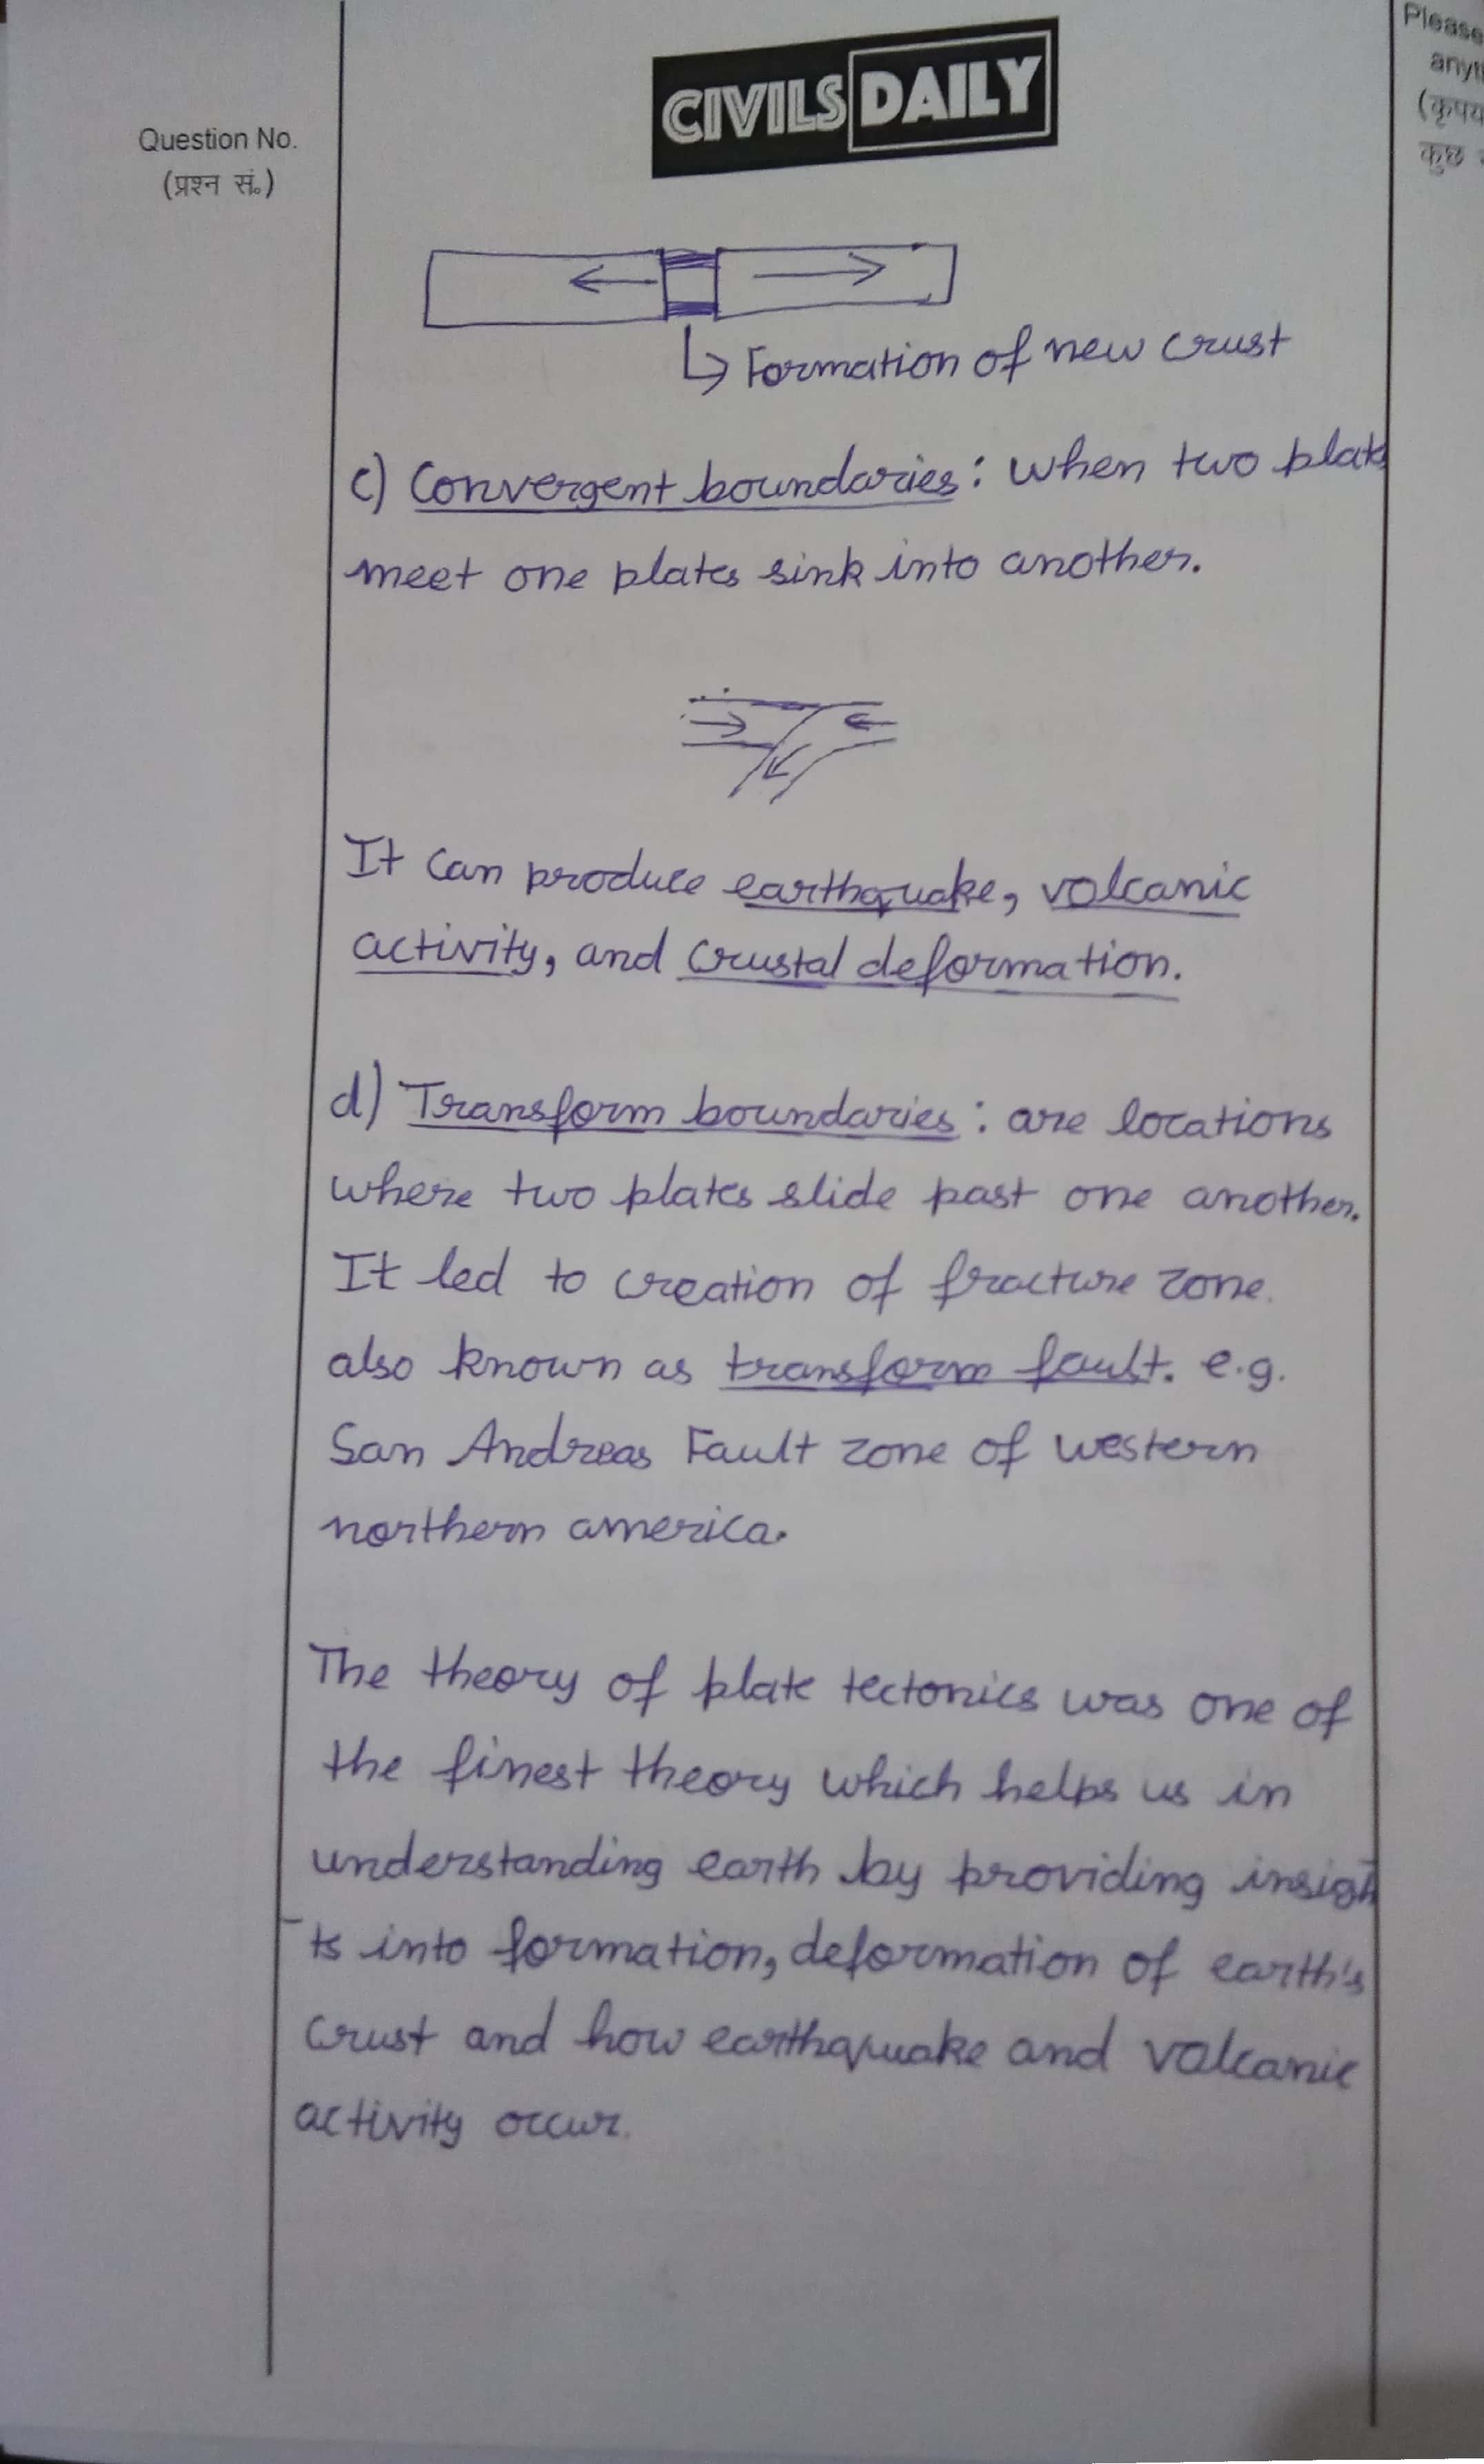 CIVILSDAILY
Question No.
(प्रश्न सं.)
Please
(कृपय
कुछ
Formation of new crust
c) Convergent boundaries: when two plate
meet one plates sink into another.
It can produce earthquake, volcanic
activity, and crustal deformation.
d) Transform boundaries: are locations
where two plates slide past one another.
It led to creation of fracture zone.
also known as transform fault. e.g.
San Andreas Fault zone of western
northern america.
The theory of plate tectonics was one of
the finest theory which helps us in
understanding earth by providing insigh
ts into formation, deformation of earth's
crust and how earthquake and volcanic
activity occur.